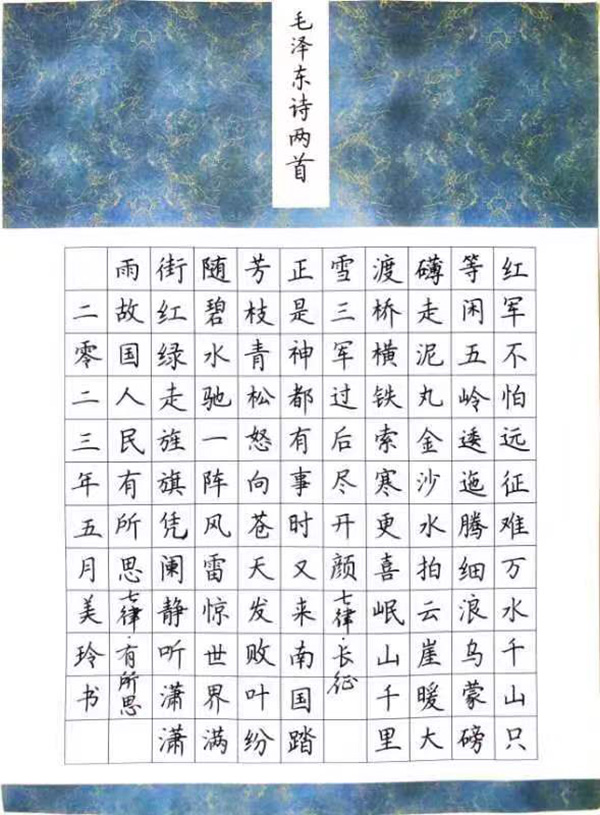 毛泽东诗两首
红军不怕远征难万水千山只
等闲五岭逶迤腾细浪乌蒙磅
礴走泥丸金沙水拍云崖暖大
渡桥横铁索寒更喜岷山千里
雪三军过后尽开颜七律·长征
正是神都有事时又来南国踏
芳枝青松怒向苍天发败叶纷
随碧水驰一阵风雷惊世界满
街红绿走旌旗凭阑静听潇潇
雨故国人民有所思七律·有所思
二零二三年五月美玲书